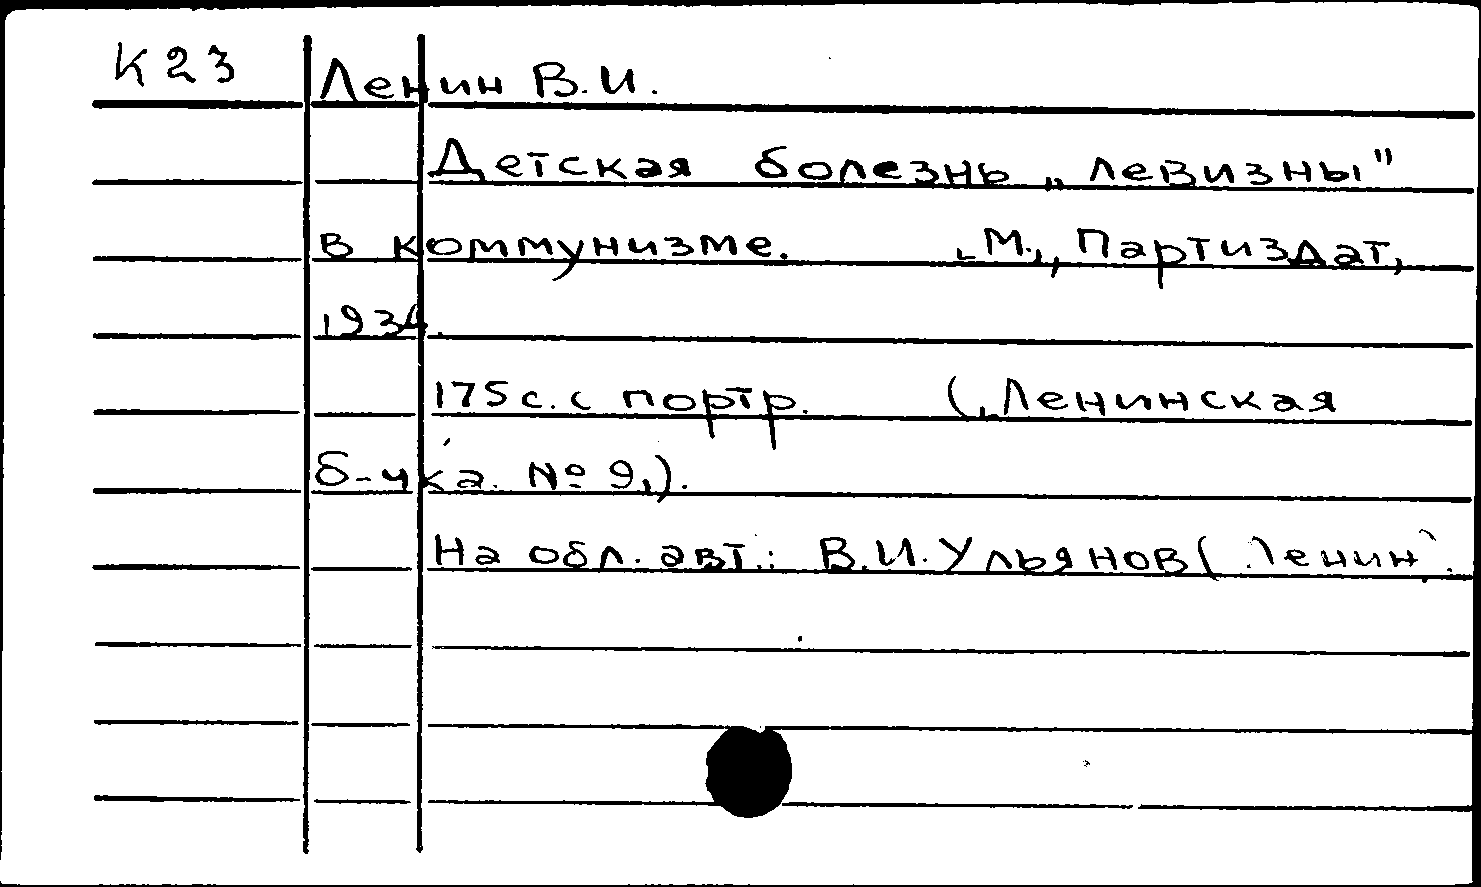 К23
Ленин В.И.
Детская болезнь „левизны"
в коммунизме. [М.], Партиздат,
1934.
175 с. с портр. ([Ленинская
б-чка. № 9]).
На обл. авт.: В.И. Ульянов (Ленин).